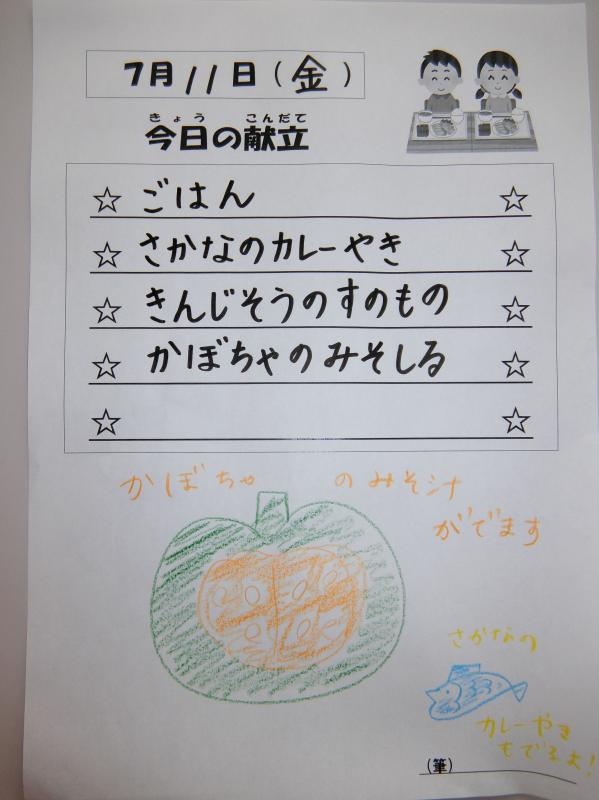 7月11日(金)
きょう こんだて
今日の献立
☆ ごはん ☆
☆ さかなのカレーやき ☆
☆ きんじそうのすのもの ☆
☆ かぼちゃのみそしる ☆
☆ ☆
かぼちゃ のみそ汁
がでます
さかなの
カレーやき
もでるよ!
(筆)